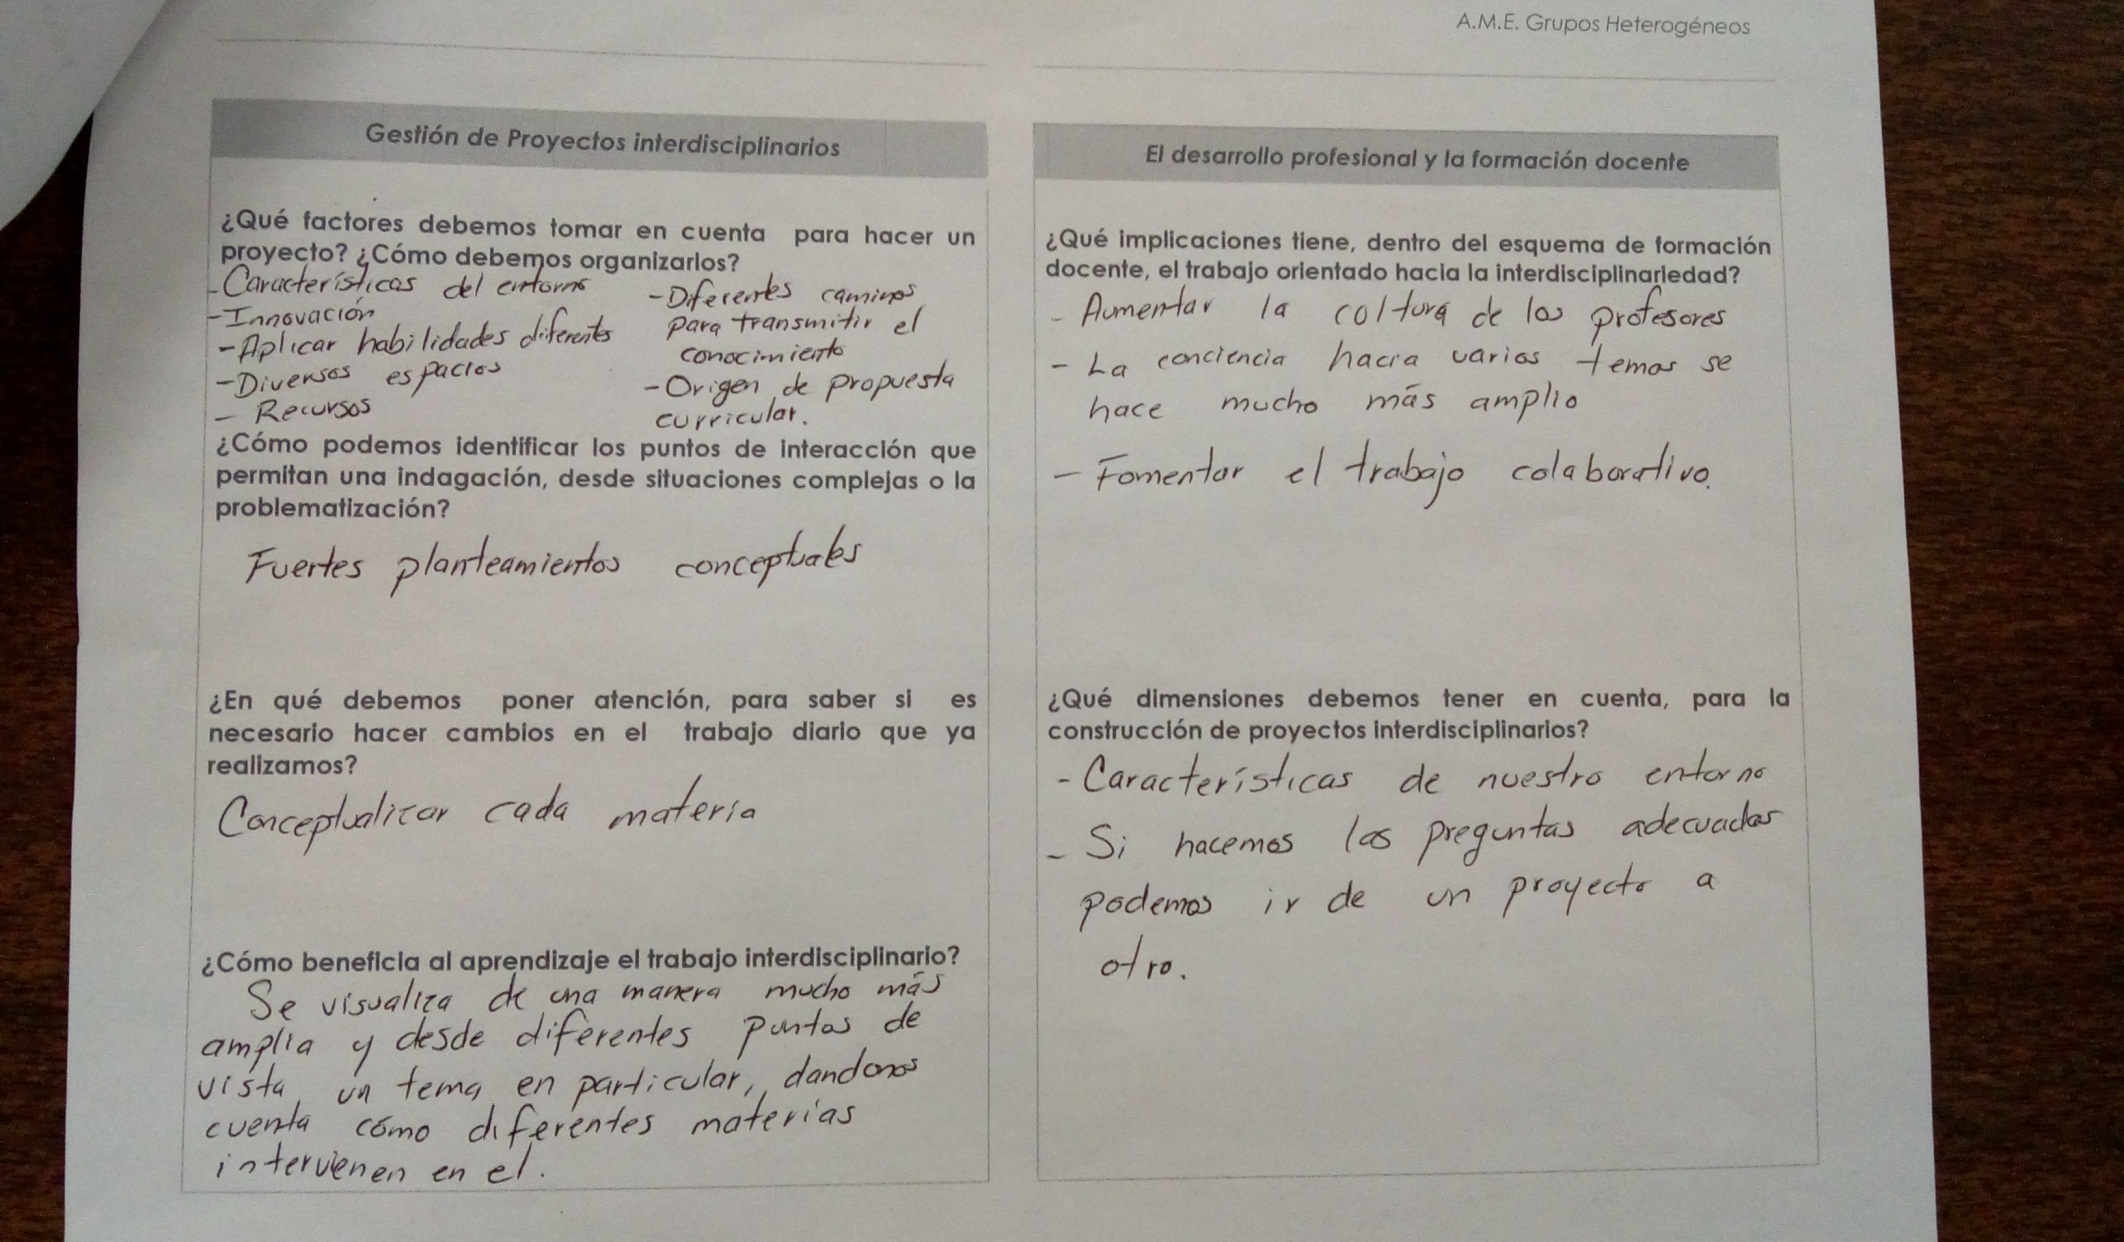 A.M.E. Grupos Heterogéneos
Gestión de Proyectos interdisciplinarios
¿Qué factores debemos tomar en cuenta para hacer un
proyecto? ¿Cómo debemos organizarlos?
- Características del entorno
- Innovación
- Aplicar habilidades diferentes
- Diversos espacios
- Recursos
- Diferentes caminos
para transmitir el
conocimiento
- Origen de propuesta
curricular.
¿Cómo podemos identificar los puntos de interacción que
permitan una indagación, desde situaciones complejas o la
problematización?
Fuertes planteamientos conceptuales
¿En qué debemos poner atención, para saber si es
necesario hacer cambios en el trabajo diario que ya
realizamos?
Conceptualizar cada materia
¿Cómo beneficia al aprendizaje el trabajo interdisciplinario?
Se visualiza de una manera mucho más
amplia y desde diferentes puntos de
vista un tema en particular, dandonos
cuenta cómo diferentes materias
intervienen en el.
El desarrollo profesional y la formación docente
¿Qué implicaciones tiene, dentro del esquema de formación
docente, el trabajo orientado hacia la interdisciplinariedad?
- Aumentar la cultura de los profesores
- La conciencia hacia varios temas se
hace mucho más amplio
- Fomentar el trabajo colaborativo.
¿Qué dimensiones debemos tener en cuenta, para la
construcción de proyectos interdisciplinarios?
- Características de nuestro entorno
- Si hacemos las preguntas adecuadas
podemos ir de un proyecto a
otro.